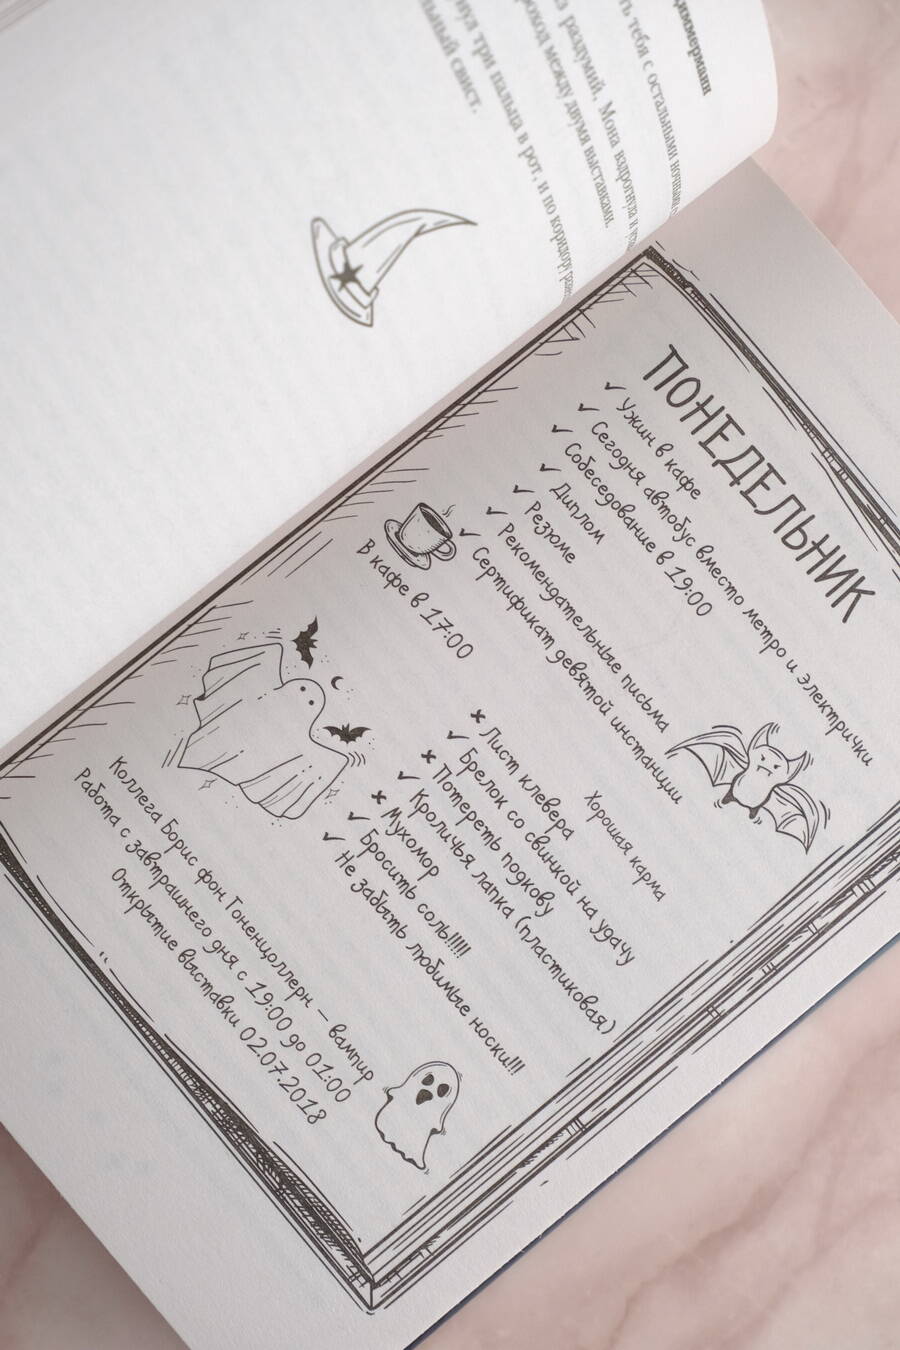 ть тебя с остальными
раздумий. Мона вздрогнула и
проход между двумя выставками.
три пальца в рот, и по коридору
свист.
ПОНЕДЕЛЬНИК
✓ Ужин в кафе
✓ Сегодня автобус вместо метро и электрички
✓ Собеседование в 19:00
✓ Диплом
✓ Резюме
✓ Рекомендательные письма
✓ Сертификат девятой инстанции
В кафе в 17:00
Хорошая карма
× Лист клевера
✓ Брелок со свинкой на удачу
× Потереть подкову
✓ Кроличья лапка (пластиковая)
× Мухомор
✓ Бросить соль!!!!!
✓ Не забыть любимые носки!!!
Коллега Борис фон Гоненцоллерн – вампир
Работа с завтрашнего дня с 19:00 до 01:00
Открытие выставки 02.07.2018